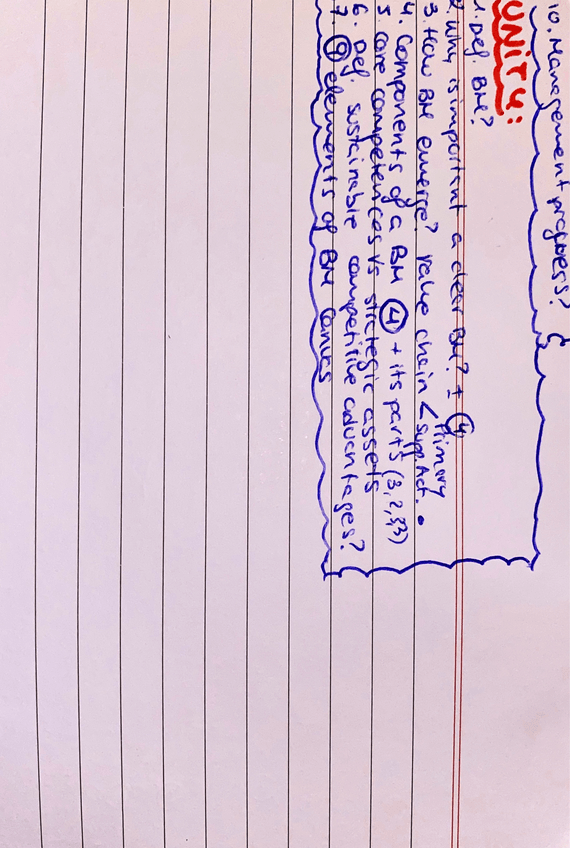 10. Management progress?
UNIT 4:
1. Def. BM?
2. Why is important a clear BM? ± ④
3. How BM emerge? Value chain < Primary
Supp. Act.
4. Components of a BM ④ + its parts (3,2,3,3)
5. Core competences Vs strategic assets
6. Def. sustainable competitive advantages?
7. ⑨ elements of BM Canvas